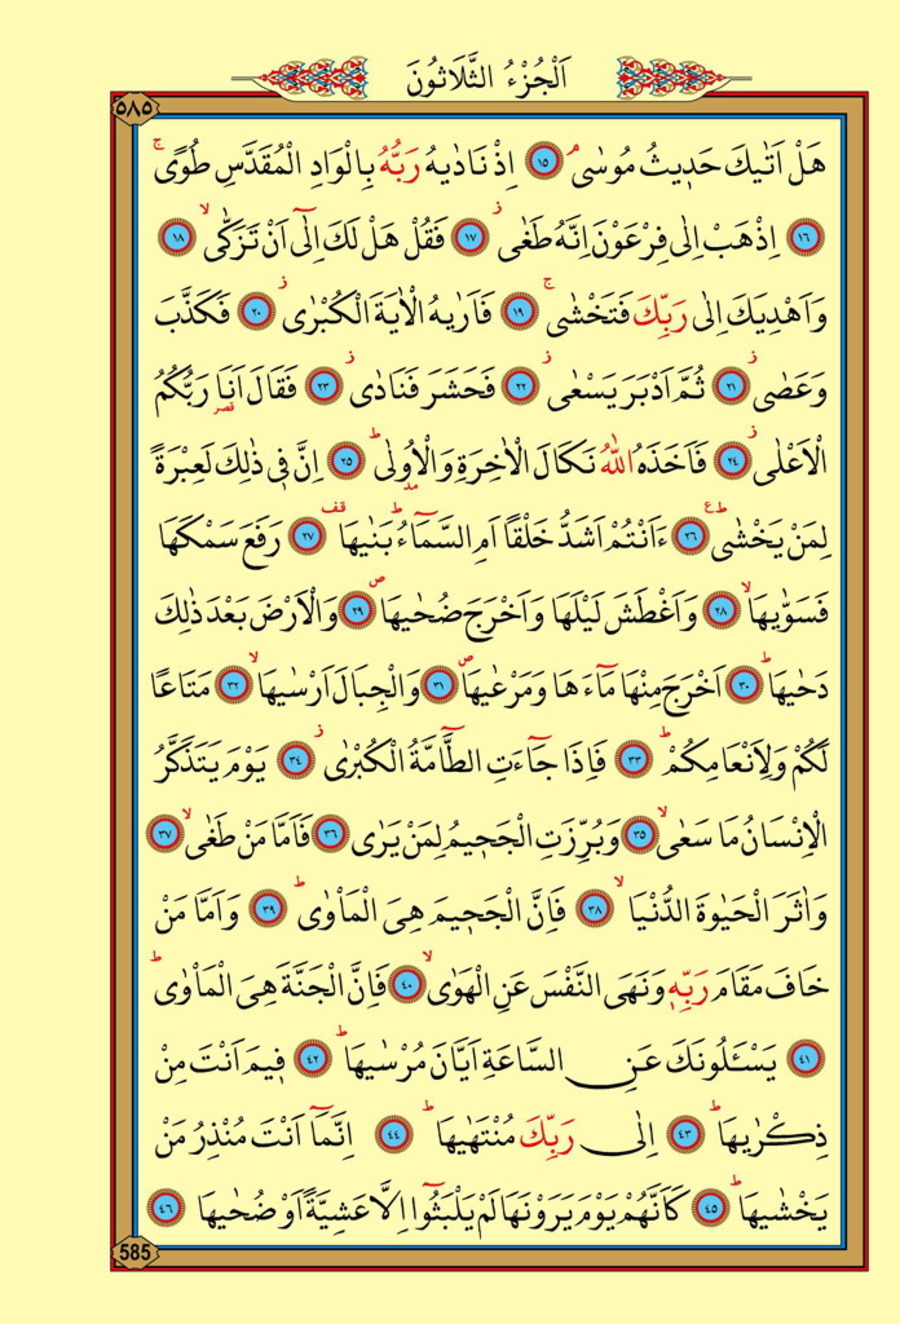 اَلْجُزْءُ الثَّلَاثُونَ
٥٨٥
هَلْ اَتٰيكَ حَد۪يثُ مُوسٰىۢ ﴿١٥﴾ اِذْ نَادٰيهُ رَبُّهُ بِالْوَادِ الْمُقَدَّسِ طُوًىۚ
﴿١٦﴾ اِذْهَبْ اِلٰى فِرْعَوْنَ اِنَّهُ طَغٰىۘ ﴿١٧﴾ فَقُلْ هَلْ لَكَ اِلٰٓى اَنْ تَزَكّٰىۙ ﴿١٨﴾
وَاَهْدِيَكَ اِلٰى رَبِّكَ فَتَخْشٰىۚ ﴿١٩﴾ فَاَرٰيهُ الْاٰيَةَ الْكُبْرٰىۘ ﴿٢٠﴾ فَكَذَّبَ
وَعَصٰىۘ ﴿٢١﴾ ثُمَّ اَدْبَرَ يَسْعٰىۘ ﴿٢٢﴾ فَحَشَرَ فَنَادٰىۘ ﴿٢٣﴾ فَقَالَ اَنَا۬ رَبُّكُمُ
الْاَعْلٰىۘ ﴿٢٤﴾ فَاَخَذَهُ اللّٰهُ نَكَالَ الْاٰخِرَةِ وَالْاُو۫لٰىۜ ﴿٢٥﴾ اِنَّ ف۪ي ذٰلِكَ لَعِبْرَةً
لِمَنْ يَخْشٰىۜ ﴿٢٦﴾ ءَاَنْتُمْ اَشَدُّ خَلْقًا اَمِ السَّمَٓاءُۜ بَنٰيهَا ﴿٢٧﴾ رَفَعَ سَمْكَهَا
فَسَوّٰيهَاۙ ﴿٢٨﴾ وَاَغْطَشَ لَيْلَهَا وَاَخْرَجَ ضُحٰيهَاۖ ﴿٢٩﴾ وَالْاَرْضَ بَعْدَ ذٰلِكَ
دَحٰيهَاۜ ﴿٣٠﴾ اَخْرَجَ مِنْهَا مَٓاءَهَا وَمَرْعٰيهَاۖ ﴿٣١﴾ وَالْجِبَالَ اَرْسٰيهَاۙ ﴿٣٢﴾ مَتَاعًا
لَكُمْ وَلِاَنْعَامِكُمْۜ ﴿٣٣﴾ فَاِذَا جَٓاءَتِ الطَّٓامَّةُ الْكُبْرٰىۘ ﴿٣٤﴾ يَوْمَ يَتَذَكَّرُ
الْاِنْسَانُ مَا سَعٰىۙ ﴿٣٥﴾ وَبُرِّزَتِ الْجَح۪يمُ لِمَنْ يَرٰى ﴿٣٦﴾ فَاَمَّا مَنْ طَغٰىۙ ﴿٣٧﴾
وَاٰثَرَ الْحَيٰوةَ الدُّنْيَاۙ ﴿٣٨﴾ فَاِنَّ الْجَح۪يمَ هِيَ الْمَأْوٰىۜ ﴿٣٩﴾ وَاَمَّا مَنْ
خَافَ مَقَامَ رَبِّه۪ وَنَهَى النَّفْسَ عَنِ الْهَوٰىۙ ﴿٤٠﴾ فَاِنَّ الْجَنَّةَ هِيَ الْمَأْوٰىۜ
﴿٤١﴾ يَسْـَٔلُونَكَ عَنِ السَّاعَةِ اَيَّانَ مُرْسٰيهَاۜ ﴿٤٢﴾ ف۪يمَ اَنْتَ مِنْ
ذِكْرٰيهَاۜ ﴿٤٣﴾ اِلٰى رَبِّكَ مُنْتَهٰيهَاۜ ﴿٤٤﴾ اِنَّمَٓا اَنْتَ مُنْذِرُ مَنْ
يَخْشٰيهَاۜ ﴿٤٥﴾ كَاَنَّهُمْ يَوْمَ يَرَوْنَهَا لَمْ يَلْبَثُٓوا اِلَّا عَشِيَّةً اَوْ ضُحٰيهَا ﴿٤٦﴾
585